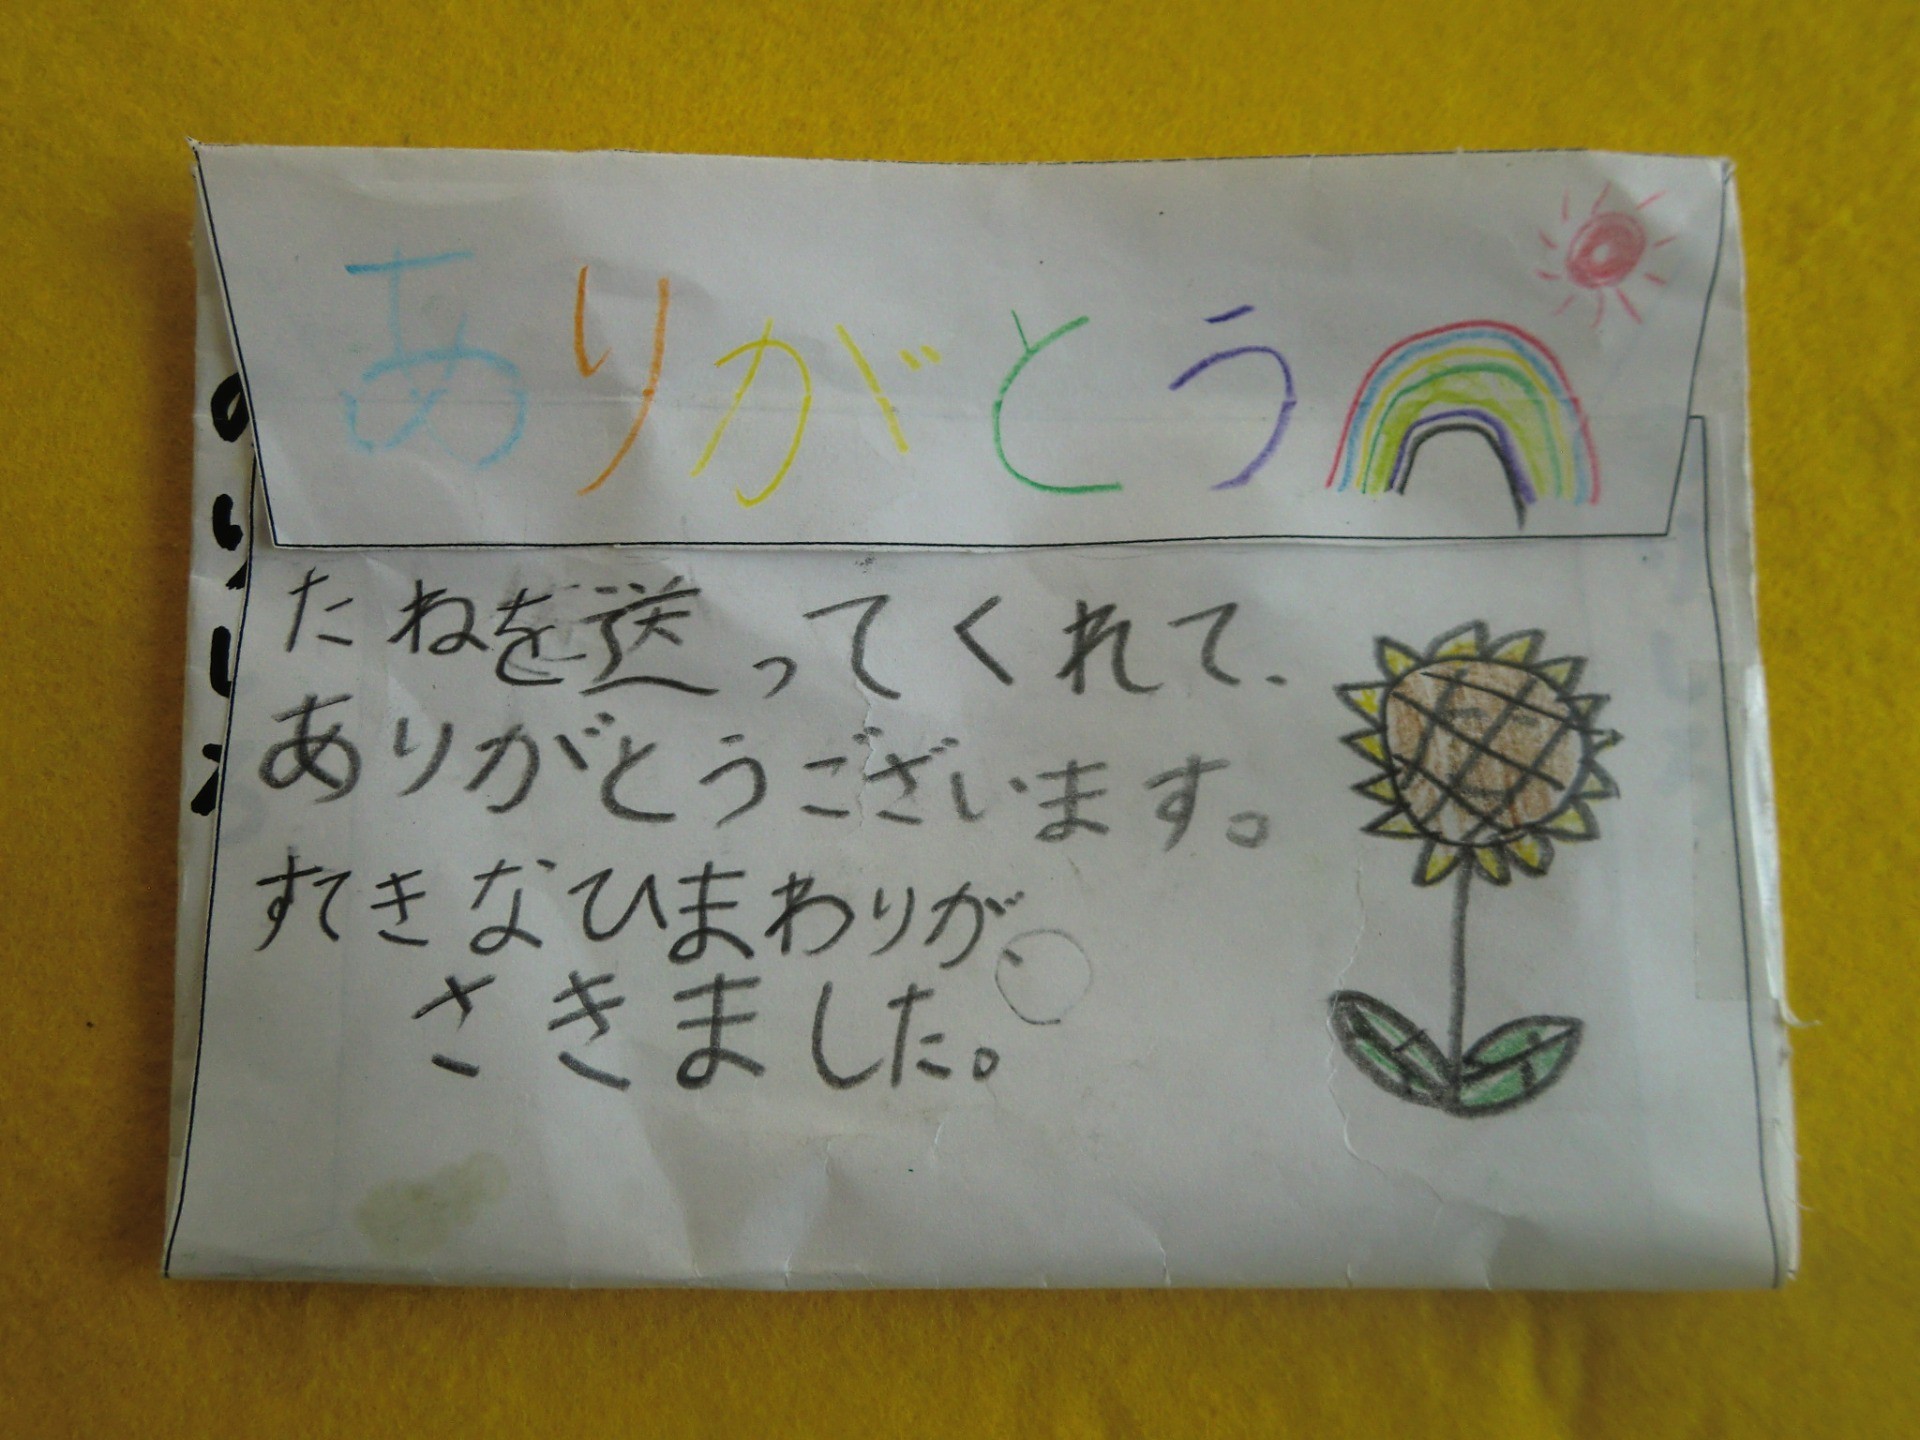 ありがとう
たねを送ってくれて、
ありがとうございます。
すてきなひまわりが、
さきました。